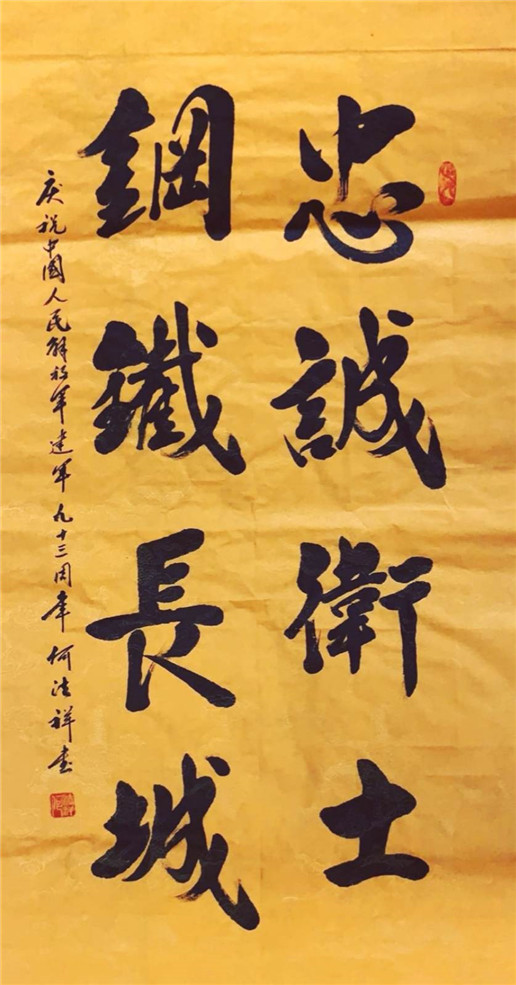 忠誠衛士
鋼鐵長城
庆祝中国人民解放军建军九十三周年 何法祥书